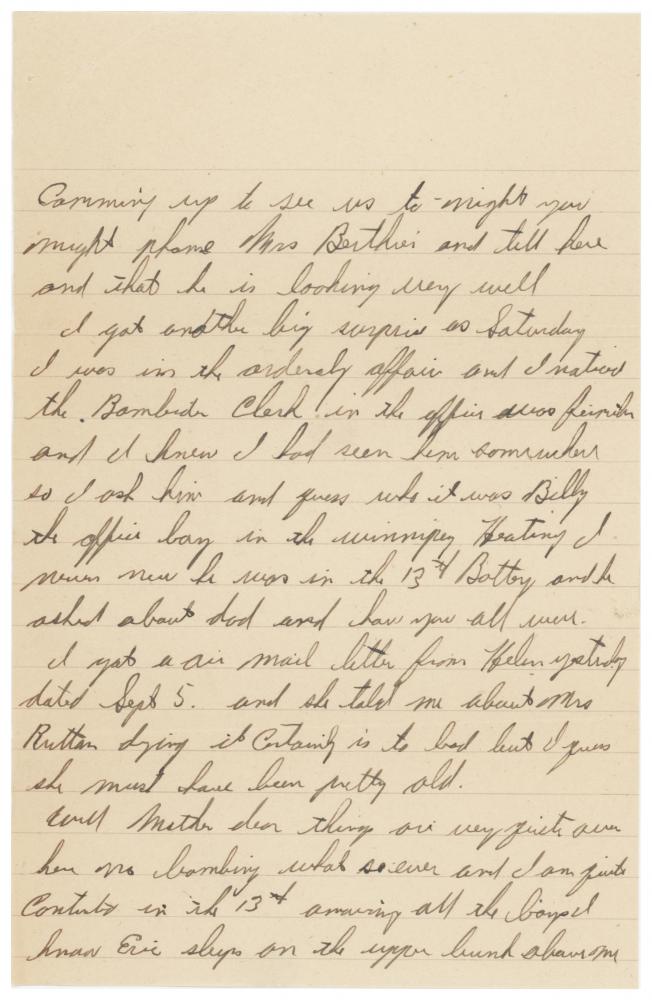 Comming up to see us to-night you
might phone Mrs Berthier and tell here
and that he is looking very well
I got another big surpris as Saturday
I was in the orderaly office and I noticed
the Bombeder Clerk in the office was
and I knew I had seen him somewhere
so I ask him and guess who it was Billy
the office boy in the winnipeg Heating I
never new he was in the 13th Battery and he
asked about dad and how you all were.
I got a air mail letter from Helen yesterday
dated Sept 5. and she told me about Mrs
Ruttan dying it Certainly is to bad but I guess
she must have been pretty old.
Well Mother dear things are very quite over
here no bombing what so ever and I am quite
in the 13th amoung all the boys I
know Eric sleeps on the upper bunk above me